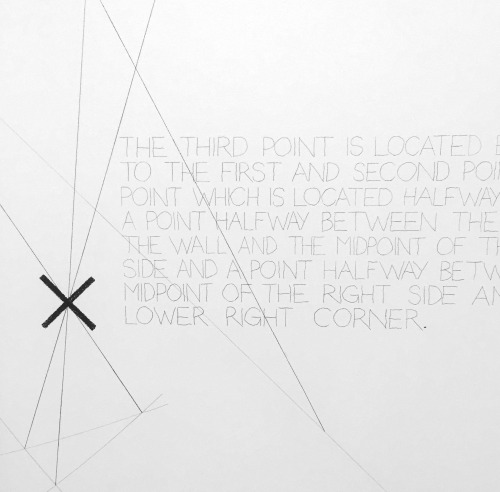 THE THIRD POINT IS LOCATED
TO THE FIRST AND SECOND
POINT WHICH IS LOCATED HALFWAY
A POINT HALFWAY BETWEEN THE
THE WALL AND THE MIDPOINT OF
SIDE AND A POINT HALFWAY
MIDPOINT OF THE RIGHT SIDE
LOWER RIGHT CORNER.